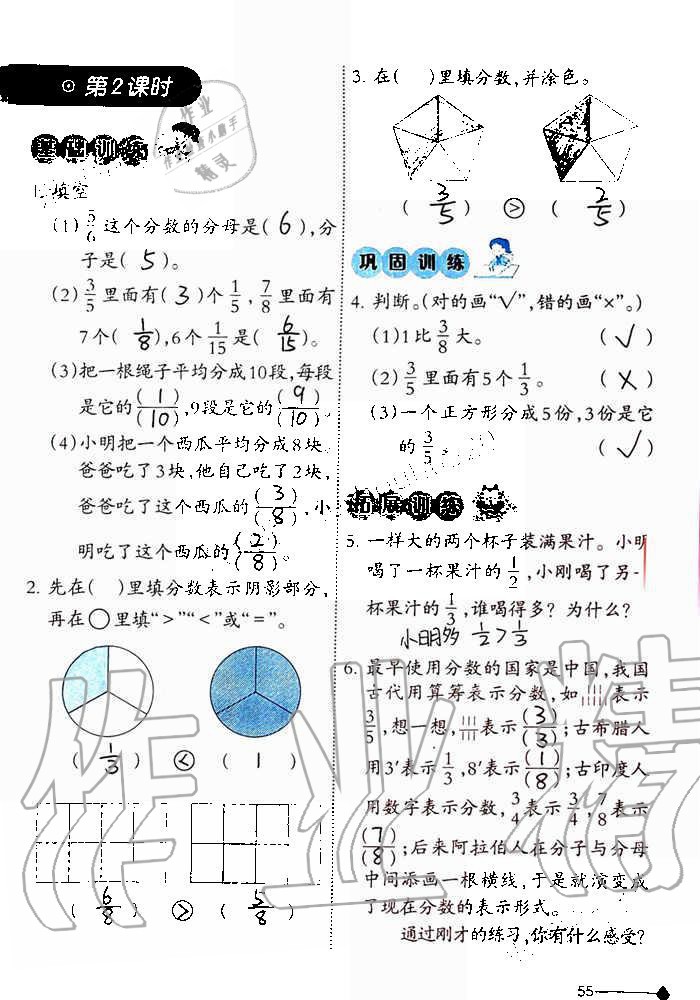 第2课时
基础训练
1. 填空
(1) 5/6 这个分数的分母是( 6 ),分
子是( 5 )。
(2) 3/5 里面有( 3 )个 1/5 , 7/8 里面有
7个( 1/8 ),6个 1/15 是( 6/15 )。
(3)把一根绳子平均分成10段,每段
是它的 (1)/(10) ,9段是它的 (9)/(10) 。
(4)小明把一个西瓜平均分成8块,
爸爸吃了3块,他自己吃了2块。
爸爸吃了这个西瓜的 (3)/(8) ,小
明吃了这个西瓜的 (2)/(8) 。
2. 先在( )里填分数表示阴影部分,
再在○里填“>”“<”或“=”。
( 1/3 ) < ( 1 )
( 6/8 ) > ( 5/8 )
3. 在( )里填分数,并涂色。
( 3/5 ) > ( 2/5 )
巩固训练
4. 判断。(对的画“√”,错的画“×”。)
(1)1比 3/8 大。 ( √ )
(2) 3/5 里面有5个 1/3 。 ( × )
(3)一个正方形分成5份,3份是它
的 3/5 。 ( √ )
拓展训练
5. 一样大的两个杯子装满果汁。小明
喝了一杯果汁的 1/2 ,小刚喝了另一
杯果汁的 1/3 ,谁喝得多?为什么?
小明多 1/2 > 1/3
6. 最早使用分数的国家是中国,我国
古代用算筹表示分数,如 表示
3/5 ,想一想, 表示 (3)/(3) ;古希腊人
用3′表示 1/3 ,8′表示 (1)/(8) ;古印度人
用数字表示分数, 3/4 表示 3/4 , 7/8 表示
(7)/(8) ;后来阿拉伯人在分子与分母
中间添画一根横线,于是就演变成
了现在分数的表示形式。
通过刚才的练习,你有什么感受?
55
作业精灵